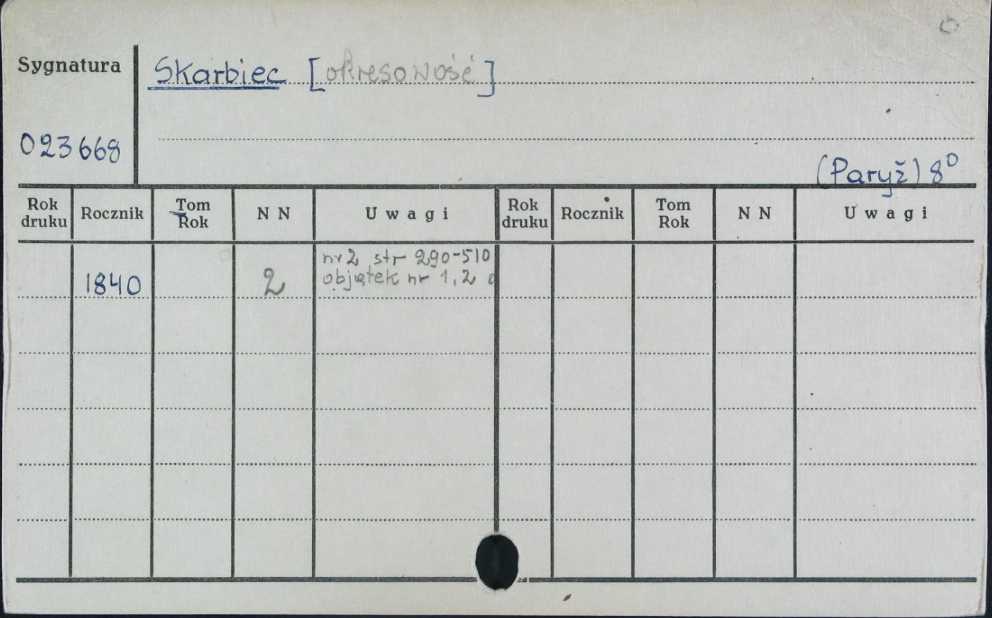 Sygnatura
Skarbiec [okresowość]
023668
(Paryż) 8⁰
Rok druku Rocznik Tom Rok N N Uwagi Rok druku Rocznik Tom Rok N N Uwagi
nr 2 str 290-510
1840 2 objątek nr 1, 2